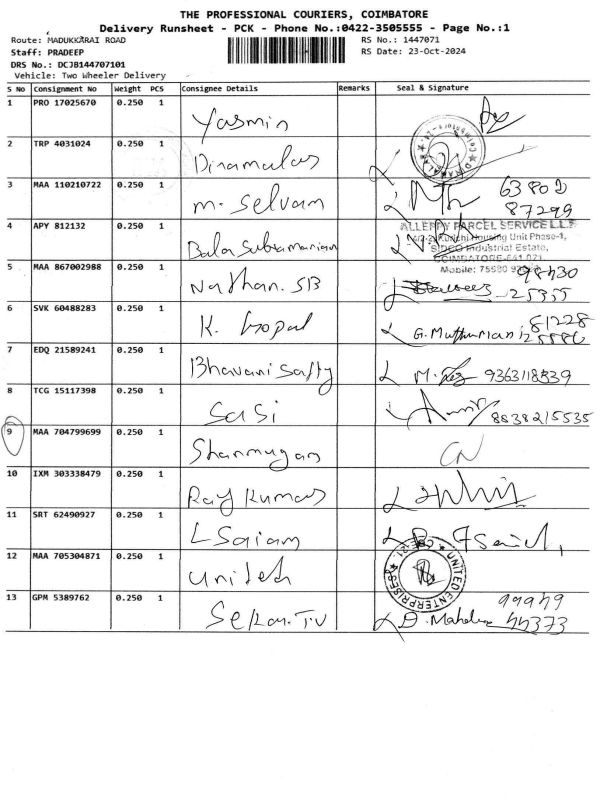 THE PROFESSIONAL COURIERS, COIMBATORE
Delivery Runsheet - PCK - Phone No.:0422-3505555 - Page No.:1
Route: MADUKKARAI ROAD
RS No.: 1447071
Staff: PRADEEP
RS Date: 23-Oct-2024
DRS No.: DCJB144707101
Vehicle: Two Wheeler Delivery
S No Consignment No Weight PCS Consignee Details Remarks Seal & Signature
1 PRO 17025670 0.250 1 Yasmin
2 TRP 4031024 0.250 1 Dinamalar
3 MAA 110210722 0.250 1 M. Selvam
87299
4 APY 812132 0.250 1 Bala Subramanian
ALLEPPY PARCEL SERVICE
Housing Unit Phase-1,
SIDCO Industrial Estate,
COIMBATORE-641 021
Mobile: 75580
5 MAA 867002988 0.250 1 Nathan. SB
25355
6 SVK 60488283 0.250 1 K. Gopal G. Muthumani 81228
7 EDQ 21589241 0.250 1 Bhavani 9363118339
8 TCG 15117398 0.250 1 Sasi 8838215535
9 MAA 704799699 0.250 1 Shanmugam CN
10 IXM 303338479 0.250 1 Raj Kumar
11 SRT 62490927 0.250 1 L Sairam
12 MAA 705304871 0.250 1 United
UNITED ENTERPRISES
13 GPM 5389762 0.250 1 Sekar. T.V D. 99949
44373